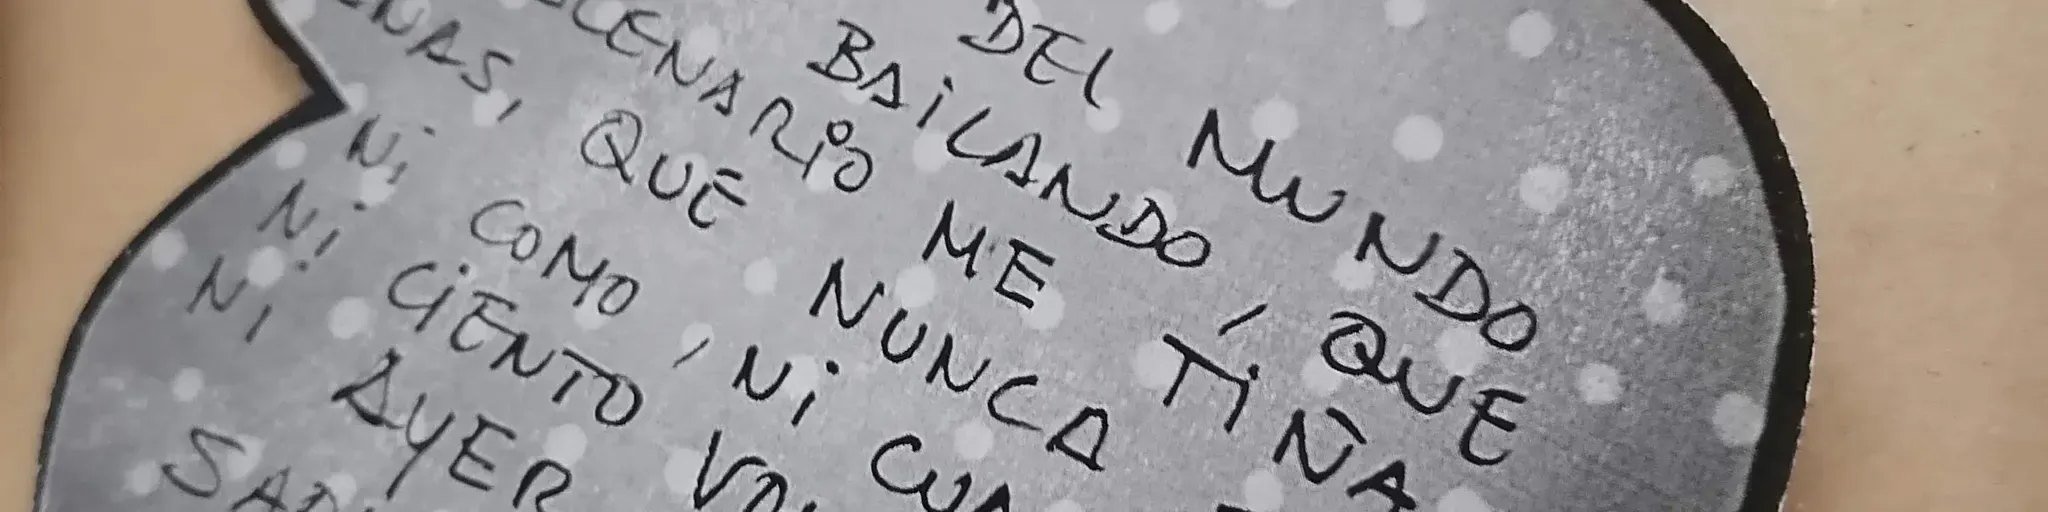 DEL MUNDO
BAILANDO, QUE
CENARIO ME TIÑA
NAS, QUE NUNCA
NI COMO, NI CUA
NI CIENTO
NI AYER